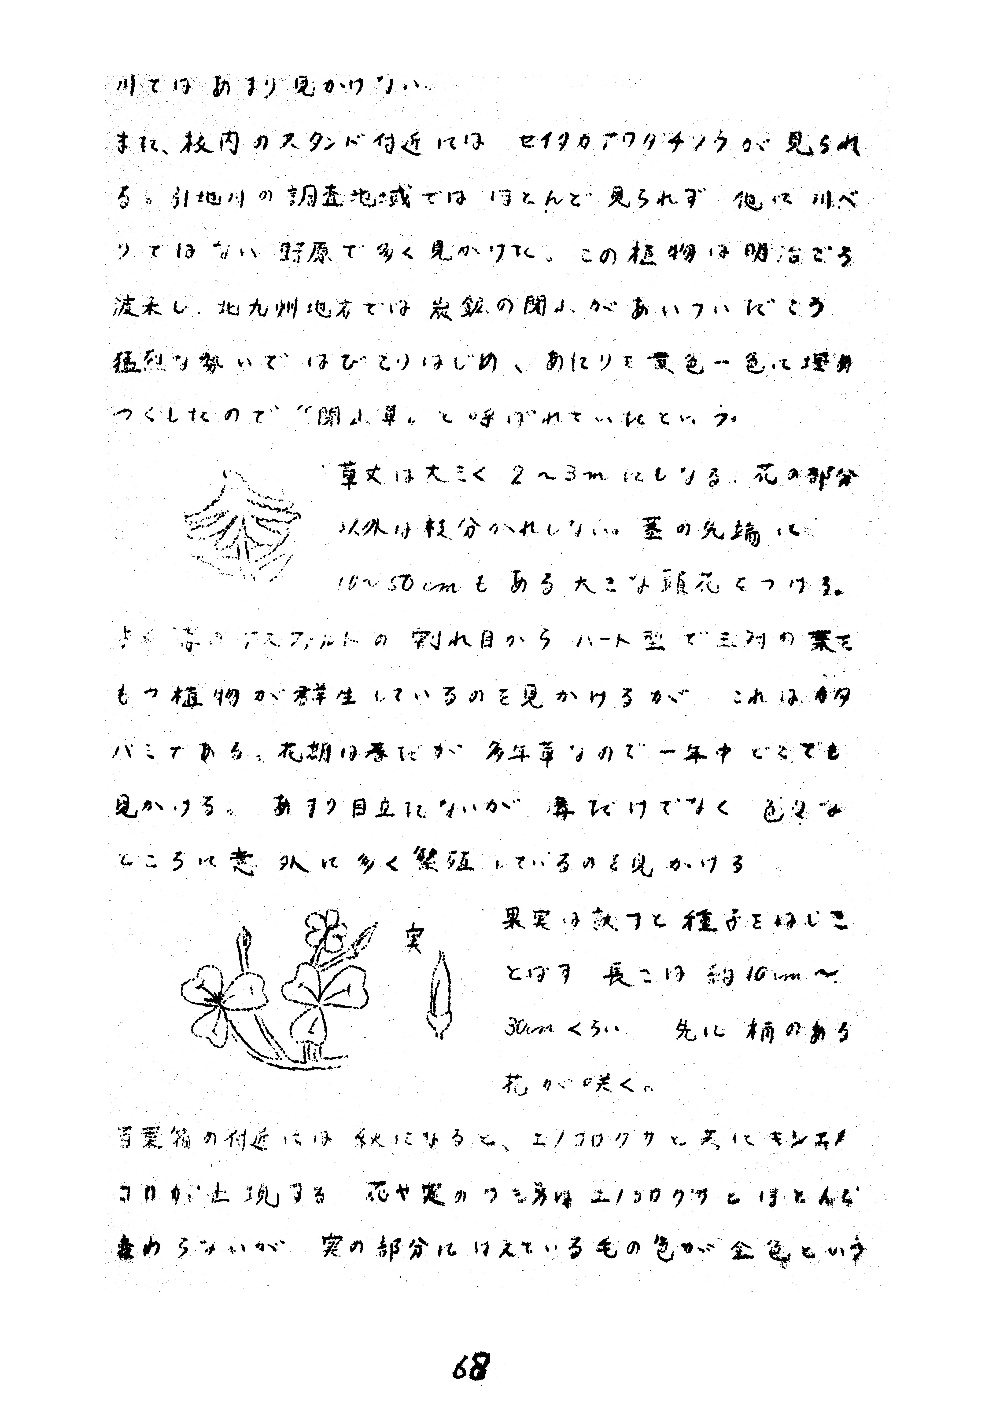 川ではあまり見かけない。
また、校内のスタンド付近には セイタカアワダチソウが見られ
る。引地川の調査地域では ほとんど見られず 他に川べ
りではない 野原で多く見かけた。この植物は明治ごろ
渡来し、北九州地方では炭鉱の閉山があいついだころ
猛烈な勢いで はびこりはじめ、あたりを黄色一色に埋め
つくしたので“閉山草”と呼ばれていたという。
草丈は大きく 2〜3mにもなる。花の部分
以外は枝分かれしない。茎の先端に
10〜50cmもある大きな頭花をつける。
よく アスファルトの割れ目から ハート型で三対の葉を
もつ植物が群生しているのを見かけるが これはカタ
バミである。花期は春だが 多年草なので一年中どこでも
見かける。 あまり目立たないが 春だけでなく 色々な
ところに意外に多く繁殖しているのを見かける
実
果実は熟すと種子をはじき
とばす 長さは 約10cm〜
30cmくらい 先に柄のある
花が咲く。
百葉箱の付近には 秋になると、エノコログサと共にキンエノ
コロが出現する 花や実のつき方はエノコログサとほとんど
変わらないが 実の部分にはえている毛の色が金色という
68